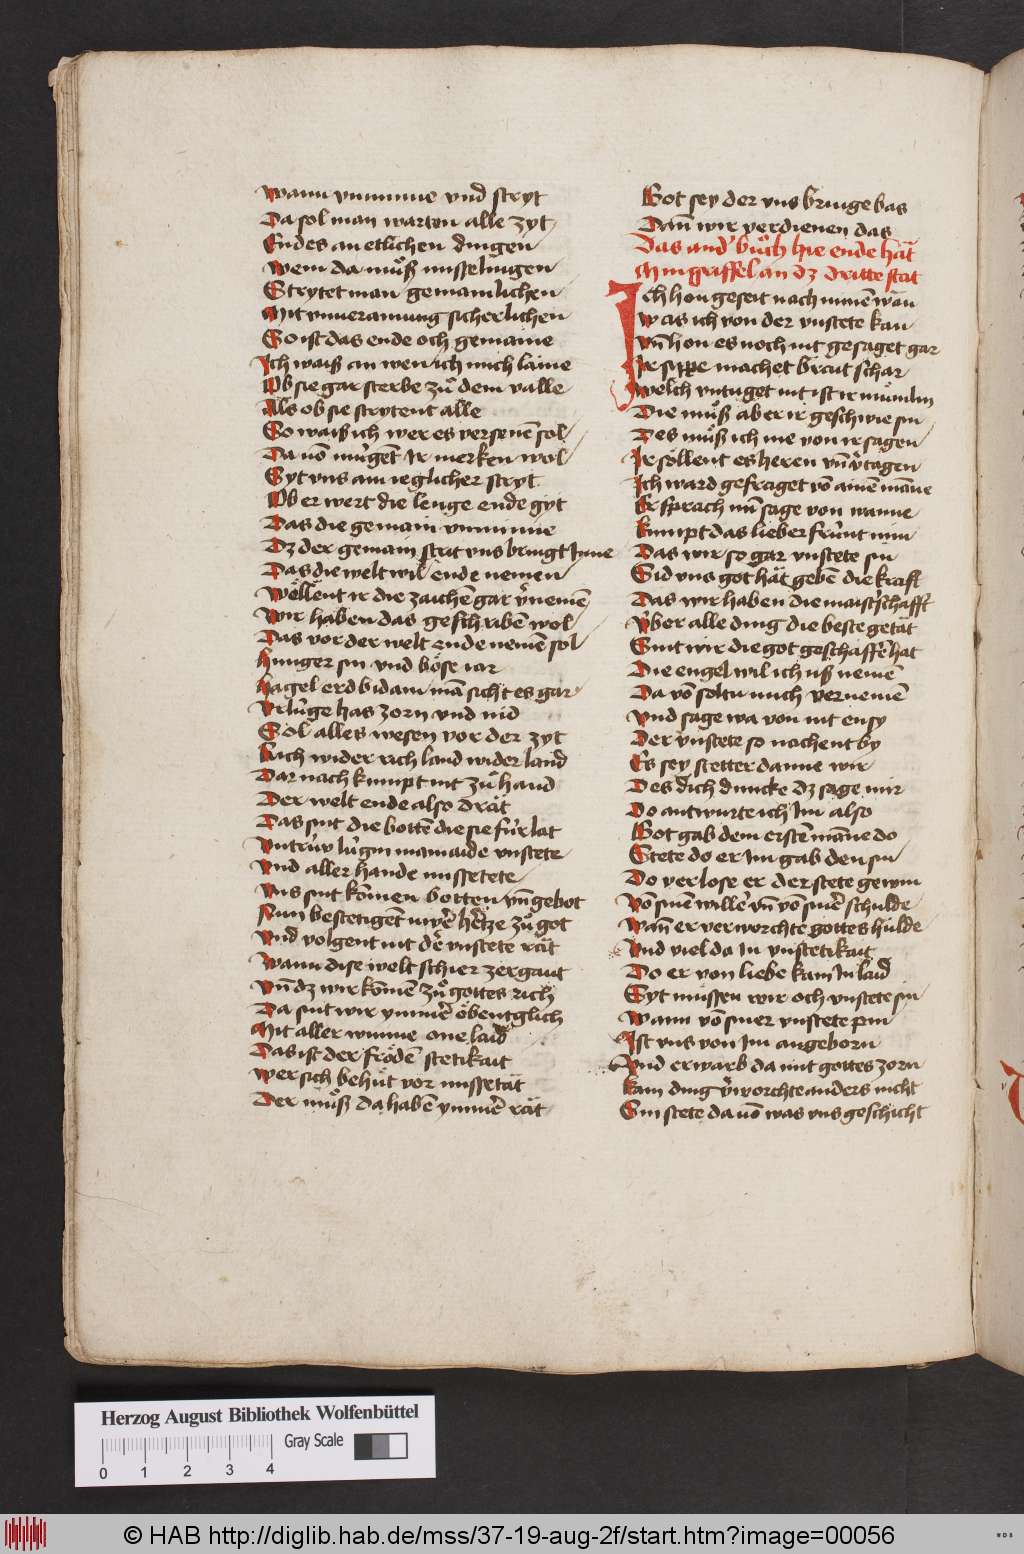 Wann vnminne vnd stryt
Da sol man warten alle zyt
Endes an etlichen dingen
Wem da muͦß misselingen
Strytet man gemainlichen
Mit vnuerainung sicherlichen
So ist das ende och gemaine
Ich waiß an wen ich mich laine
Ob sie gar sterbe zuͦ dem valle
Als ob sie strytent alle
So waiß ich wer es versenē sol
Da vō mu̍gēt Ir merken wol
Syt vns ain ieglicher stryt
Ob er wert die lenge ende gyt
Das die gemain vnminne
Dz der gemain strit vns bringt Inne
Das die welt wil ende nemen
Wöllent ir die zaichē gar v̾nemē
Wir haben das geschribē wol
Das vor der welt ende nemē sol
Hunger sin vnd böse iar
Hagel erdbidam mā sicht es gar
Vrlu̍ge has zorn vnd nid
Sol alles wesen vor der zyt
Rich wider rich land wider land
Dar nach kumpt nit zuͦ hand
Der welt ende also drät
Das sint die bottē die sie fu̍r lat
Vntru̍w lu̍gin mainaide vnstete
Vnd aller hande missetete
Vns sint komen botten vn̄ gebot
Nun bestetigēt uwer̄ hertze zuͦ got
Vnd volgent nit der̄ vnstete rät
Wann dise welt schier zergaut
Vn̄ dz wir komē zuͦ gottes rich
Da sint wir ymmer̄ öbentglich
Mit aller wunne one laid
Das ist der frödē stetikait
Wer sich behüt vor missetät
Der muͦß da habē ymmer̄ rät
Got sey der vns bringe bas
Dan̄ wir verdienen das
Das and̾ buͦch hie ende hāt
Min griffel an dz dritte stat
Ich hon geseit nach minē wān
Was ich von der vnstete kan
Vn̄ hon es noch nit gesaget gar
Ir sippe machet brait schar
Welch vntuget nit ist ir muͦmlin
Die muͦß aber ir geschwie sin
Des muͦß ich me von ir sagen
Ir söllent es heren vn̄ v̾tagen
Ich ward gefraget vō ainē manne
Er sprach nu̅ sage von wanne
Kumpt das lieber fru̍nt min
Das wir so gar vnstete sin
Sid vns got hät gebē die kraft
Das wir haben die maisterschafft
Vber alle ding die beste getät
Sint wir die got geschaffē hat
Die engel wil ich uß nemē
Da vō soltu mich vernemē
Vnd sage wa von nit ensy
Der vnstete so nachent by
Es sey stetter danne wir
Des dich duncke dz sage mir
Do antwurte ich Im also
Got gab dem erstē manne do
Stete do er Im gab den sin
Do verlose er der stete gewin
Vō sinē willē vn̄ vō siner̄ schulde
Wan̄ er verworchte gottes hulde
Vnd viel da In vnstetikait
Do er von liebe kam In laid
Syt müssen wir och vnstete sin
Wann vō siner vnstete pin
Ist vns von Im angeborn
Vnd erwarb da mit gottes zorn
Kain ding v̾worchte anders nicht
Sin stete da vō was vns geschicht
Herzog August Bibliothek Wolfenbüttel
Gray Scale
0 1 2 3 4
© HAB http://diglib.hab.de/mss/37-19-aug-2f/start.htm?image=00056